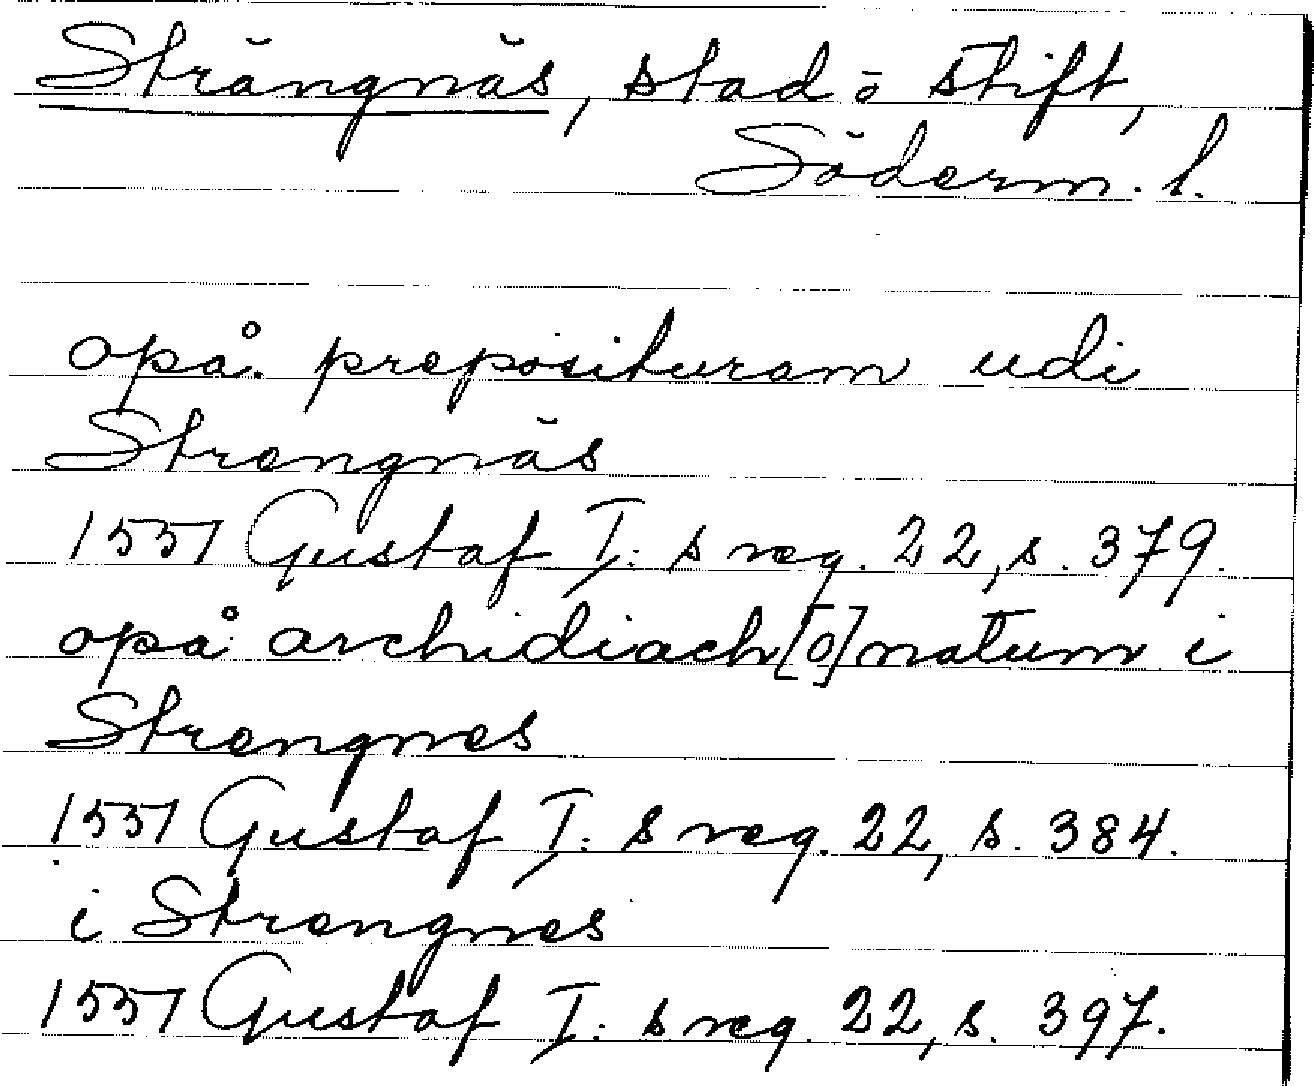 Strängnäs, stad o stift,
Söderm. l.
opå preposituram udi
Strengnäs
1551 Gustaf I:s reg. 22, s. 379.
opå archidiach[o]natum i
Strengnes
1551 Gustaf I:s reg. 22, s. 384.
i Strengnes
1551 Gustaf I:s reg. 22, s. 397.